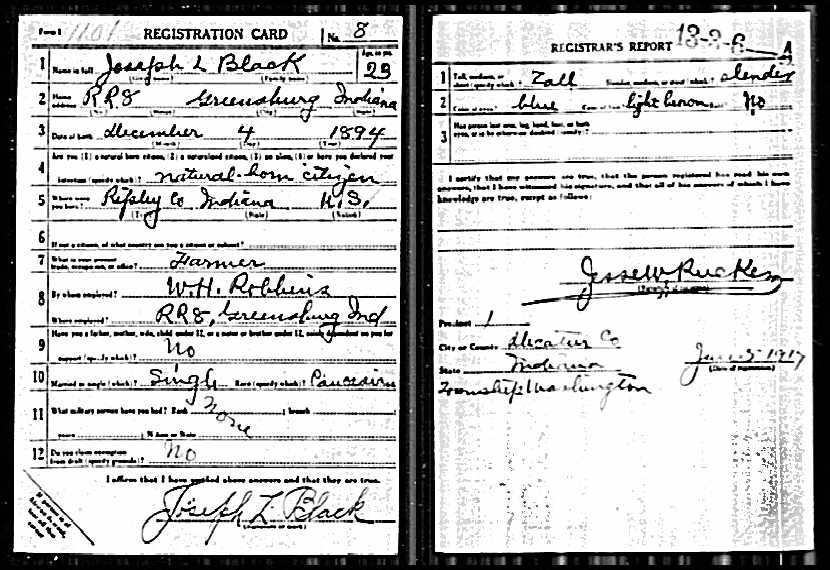 Form 1 1101 REGISTRATION CARD No. 8
1 Name in full Joseph L Black Age, in yrs. 23
(Given name) (Family name)
2 Home address RR8 Greensburg Indiana
(No.) (Street) (City) (State)
3 Date of birth December 4 1894
(Month) (Day) (Year)
4 Are you (1) a natural born citizen, (2) a naturalized citizen, (3) an alien, (4) or have you declared your
intention (specify which)? natural-born citizen
5 Where were you born? Ripley Co Indiana U.S.
(Town) (State) (Nation)
6 If not a citizen, of what country are you a citizen or subject?
7 What is your present trade, occupation, or office? Farmer
8 By whom employed? W.H. Robbins
Where employed? RR8, Greensburg Ind
9 Have you a father, mother, wife, child under 12, or a sister or brother under 12, solely dependent on you for
support (specify which)? No
10 Married or single (which)? Single Race (specify which)? Caucasian
11 What military service have you had? Rank None ; branch
years ; Nation or State
12 Do you claim exemption from draft (specify grounds)? No
I affirm that I have verified above answers and that they are true.
Joseph L Black
(Signature or mark)
REGISTRAR'S REPORT 13-3-6 A
1 Tall, medium, or short (specify which)? Tall Slender, medium, or stout (which)? slender
2 Color of eyes? blue Color of hair? light brown Bald? No
3 Has person lost arm, leg, hand, foot, or both
eyes, or is he otherwise disabled (specify)?
I certify that my answers are true, that the person registered has read his own
answers, that I have witnessed his signature, and that all of his answers of which I have
knowledge are true, except as follows:
Jesse W Rucker
(Signature of registrar)
Precinct 1
City or County Decatur Co
State Indiana Jun 5 1917
(Date of registration)
Township Washington